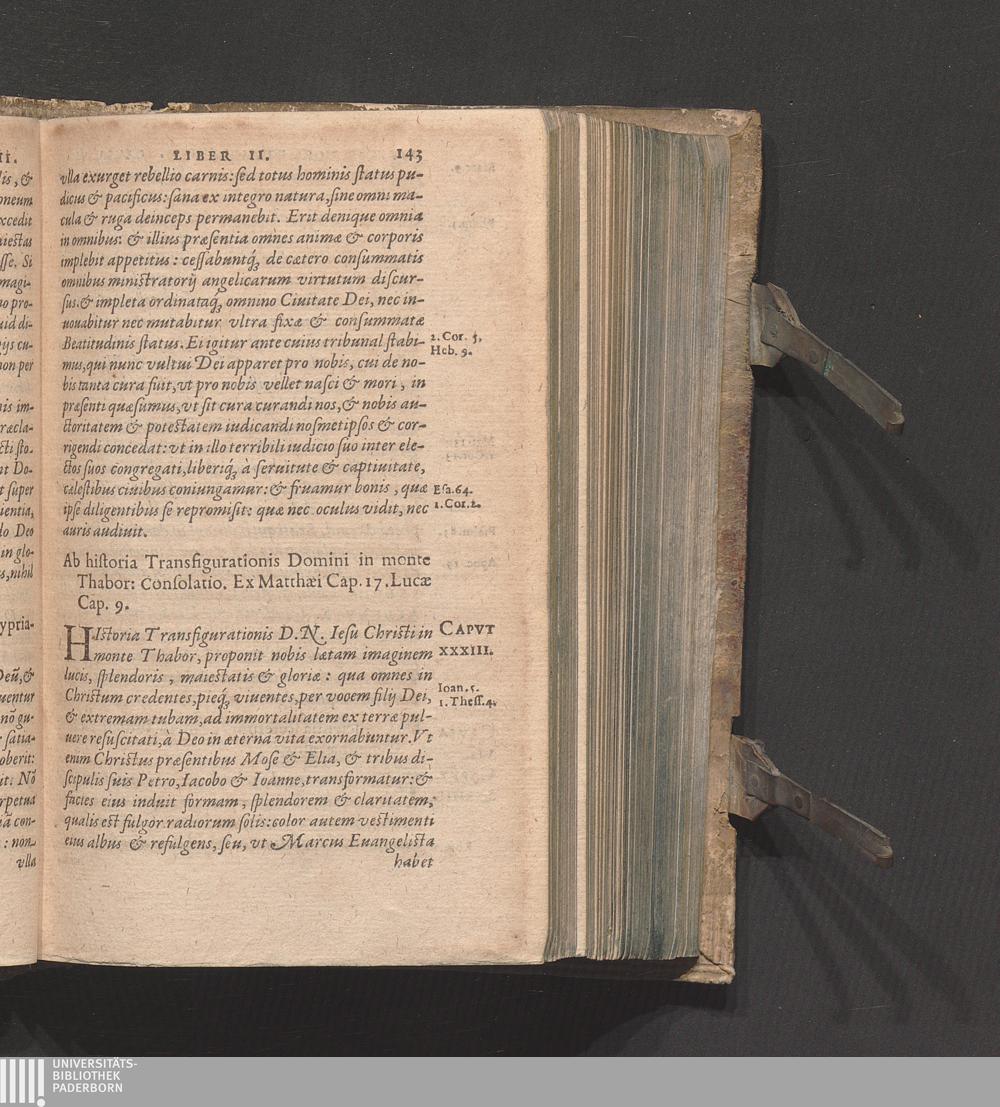 II.
lis, &
oneum
xcedit
iestas
sse. Si
magi-
no pro-
uid di-
ijs cu-
non per
is im-
ræcla-
cti sto-
nt Do-
t super
ientia,
lo Deo
in glo-
s, nihil
ypria-
Deũ, &
uentur
nõ gu-
satia-
oberit:
it. Nõ
rpetua
ã con-
: non-
vlla
LIBER II. 143
vlla exurget rebellio carnis: sed totus hominis status pu-
dicus & pacificus: sana ex integro natura, sine omni ma-
cula & ruga deinceps permanebit. Erit denique omnia
in omnibus: & illius præsentia omnes animæ & corporis
implebit appetitus: cessabuntq́ꝫ de cætero consummatis
omnibus ministratorij angelicarum virtutum discur-
sus. & impleta ordinataq́ꝫ omnino Ciuitate Dei, nec in-
uouabitur nec mutabitur vltra fixæ & consummatæ
Beatitudinis status. Ei igitur ante cuius tribunal stabi-
mus, qui nunc vultui Dei apparet pro nobis, cui de no-
bis tanta cura fuit, vt pro nobis vellet nasci & mori, in
præsenti quæsumus, vt sit cura curandi nos, & nobis au-
ctoritatem & potestatem iudicandi nosmetipsos & cor-
rigendi concedat: vt in illo terribili iudicio suo inter ele-
ctos suos congregati, liberiq́ꝫ à seruitute & captiuitate,
cælestibus ciuibus coniungamur: & fruamur bonis, quæ
ipse diligentibus se repromisit: quæ nec oculus vidit, nec
auris audiuit.
2. Cor. 5.
Heb. 9.
Esa. 64.
1. Cor. 2.
Ab historia Transfigurationis Domini in monte
Thabor: Consolatio. Ex Matthæi Cap. 17. Lucæ
Cap. 9.
HIstoria Transfigurationis D. N. Iesu Christi in
monte Thabor, proponit nobis lætam imaginem
lucis, splendoris, maiestatis & gloriæ: qua omnes in
Christum credentes, pieq́ꝫ viuentes, per vocem filij Dei,
& extremam tubam, ad immortalitatem ex terræ pul-
uere resuscitati, à Deo in æternã vita exornabuntur. Vt
enim Christus præsentibus Mose & Elia, & tribus di-
scipulis suis Petro, Iacobo & Ioanne, transformatur: &
facies eius induit formam, splendorem & claritatem,
qualis est fulgor radiorum solis: color autem vestimenti
eius albus & refulgens, seu, vt Marcus Euangelista
habet
CAPVT
XXXIII.
Ioan. 5.
1. Thess. 4.
UNIVERSITÄTS-
BIBLIOTHEK
PADERBORN